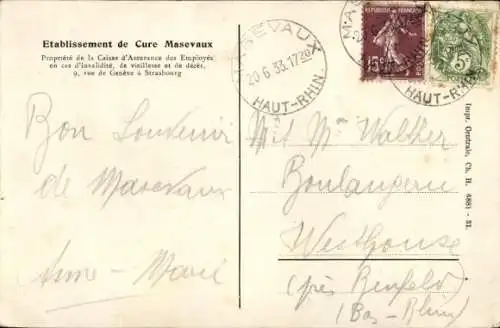 Etablissement de Cure Masevaux
Propriété de la Caisse d'Assurance des Employés
en cas d'invalidité, de vieillesse et de décès,
9, rue de Genève à Strasbourg
MASEVAUX
20 6 33. 1720
HAUT-RHIN.
REPUBLIQUE FRANÇAISE
HAUT-RHIN
Bon Souvenir
de Masevaux
Anne-Marie
M. et Mme Walther
Boulangerie
Westhouse
(près Benfeld)
(Bas-Rhin)
Impr. Centrale, Ch. H. 4881 - 33.